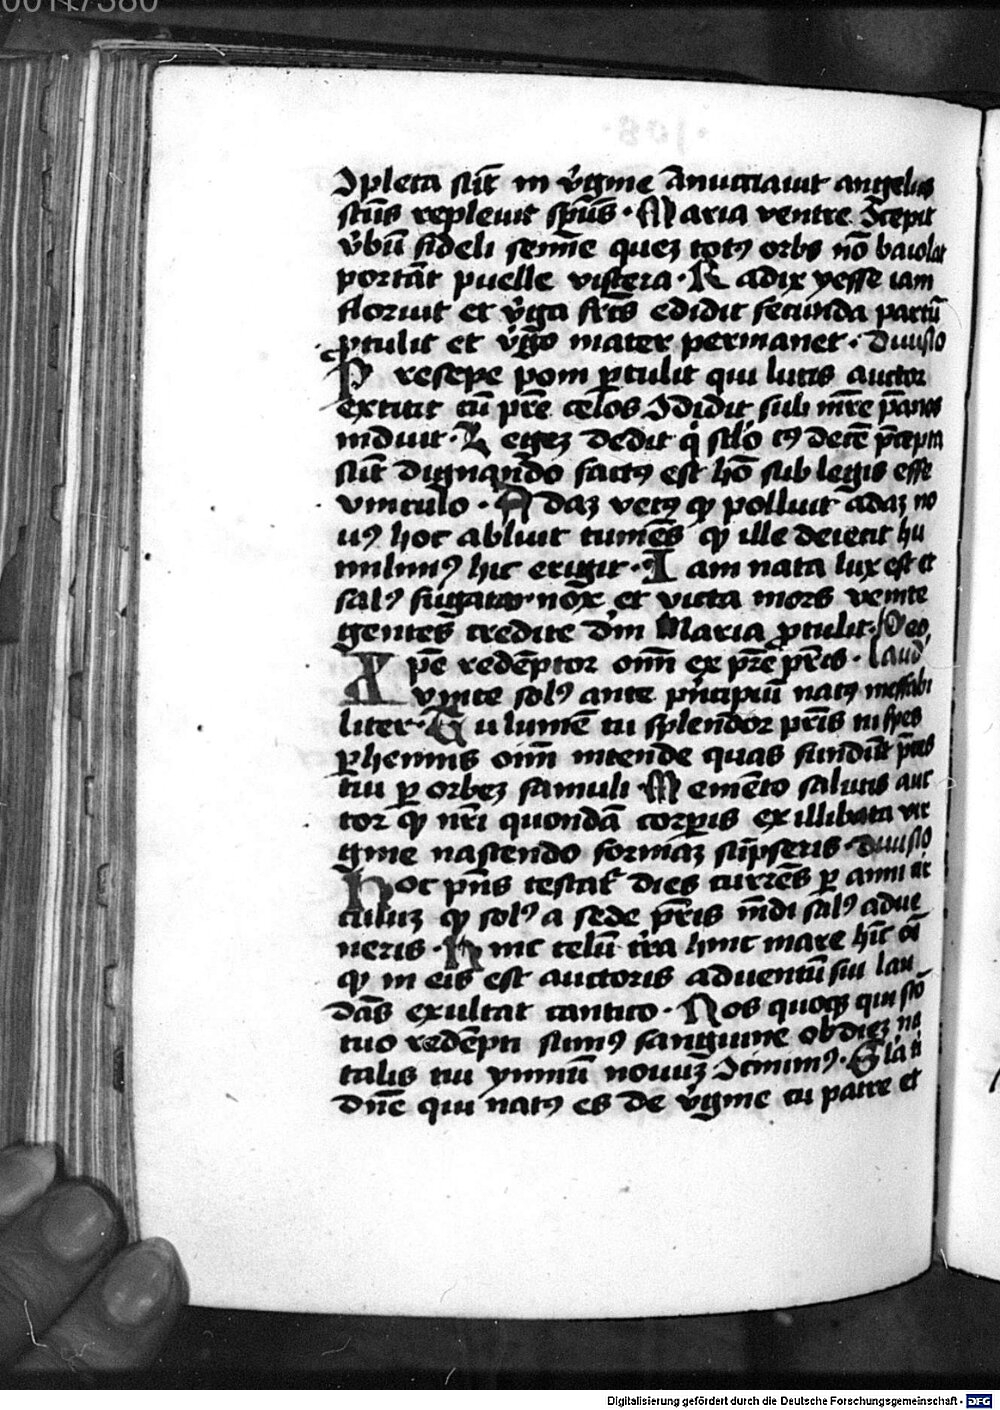 00117380
Jpleta sūt in v̓gine ānucciauit angelus
scūs repleuit sp̄us · Maria ventre ꝯcepit
v̓bū fideli semīe queꝫ totꝰ orbs nō baiolat
portāt puelle viscera · Radix yesse iam
floruit et v̓ga frc̄s edidit fecunda partū
ꝓtulit et v̓go mater permanet · diuisio
Presepe poni ꝑtulit qui lucis auctor
extitit cū pr̄e celos ꝯdidit sub mr̄e pānos
induit · Legeꝫ dedit q̇ sc̄lo cꝰ decē p̄cepta
sūt dignando factꝰ est hō sub legis esse
vinculo · Adaꝫ vetꝰ qͩ polluit adaꝫ no
uꝰ hoc abluit tumēs qͩ ille deiecit hu
milimꝰ hic erigit · Iam nata lux est et
salꝰ fugatar nox et victa mors venite
gentes credite dm̄ Maria ꝓtulit · Deo
Xp̄e redēptor oīm ex pr̄e pr̄is · laud
vnite solꝰ ante pn̓cipiū natꝰ ineffabi
liter · Tu lumē tu splendor pr̄is tu spes
ꝑhennis oīm intende quas fundūt p̄ces
tui ꝑ orbeꝫ famuli · Memēto salutis auc
tor qͩ nr̄i quondā corꝑis ex illibata vir
gine nascendo formāꝫ sūpseris · diuisio
Hoc pn̄s testat̓ dies currēs ꝑ anni cir
culuꝫ qͩ solꝰ a sede pr̄is mūdi salꝰ adue
neris · Hunc celū tr̓a hunc mare hūc oē
qͩ in eis est auctoris aduentū siu lau
dās exultat cantico · Nos quoqꝫ qui scō
tuo redēpti sumꝰ sanguine ob dieꝫ na
talis tui ymnū nouuꝫ ꝯcinimꝰ · Gl̄a ti
dn̄e qui natꝰ es de v̓gine cu patre et
Digitalisierung gefördert durch die Deutsche Forschungsgemeinschaft - DFG